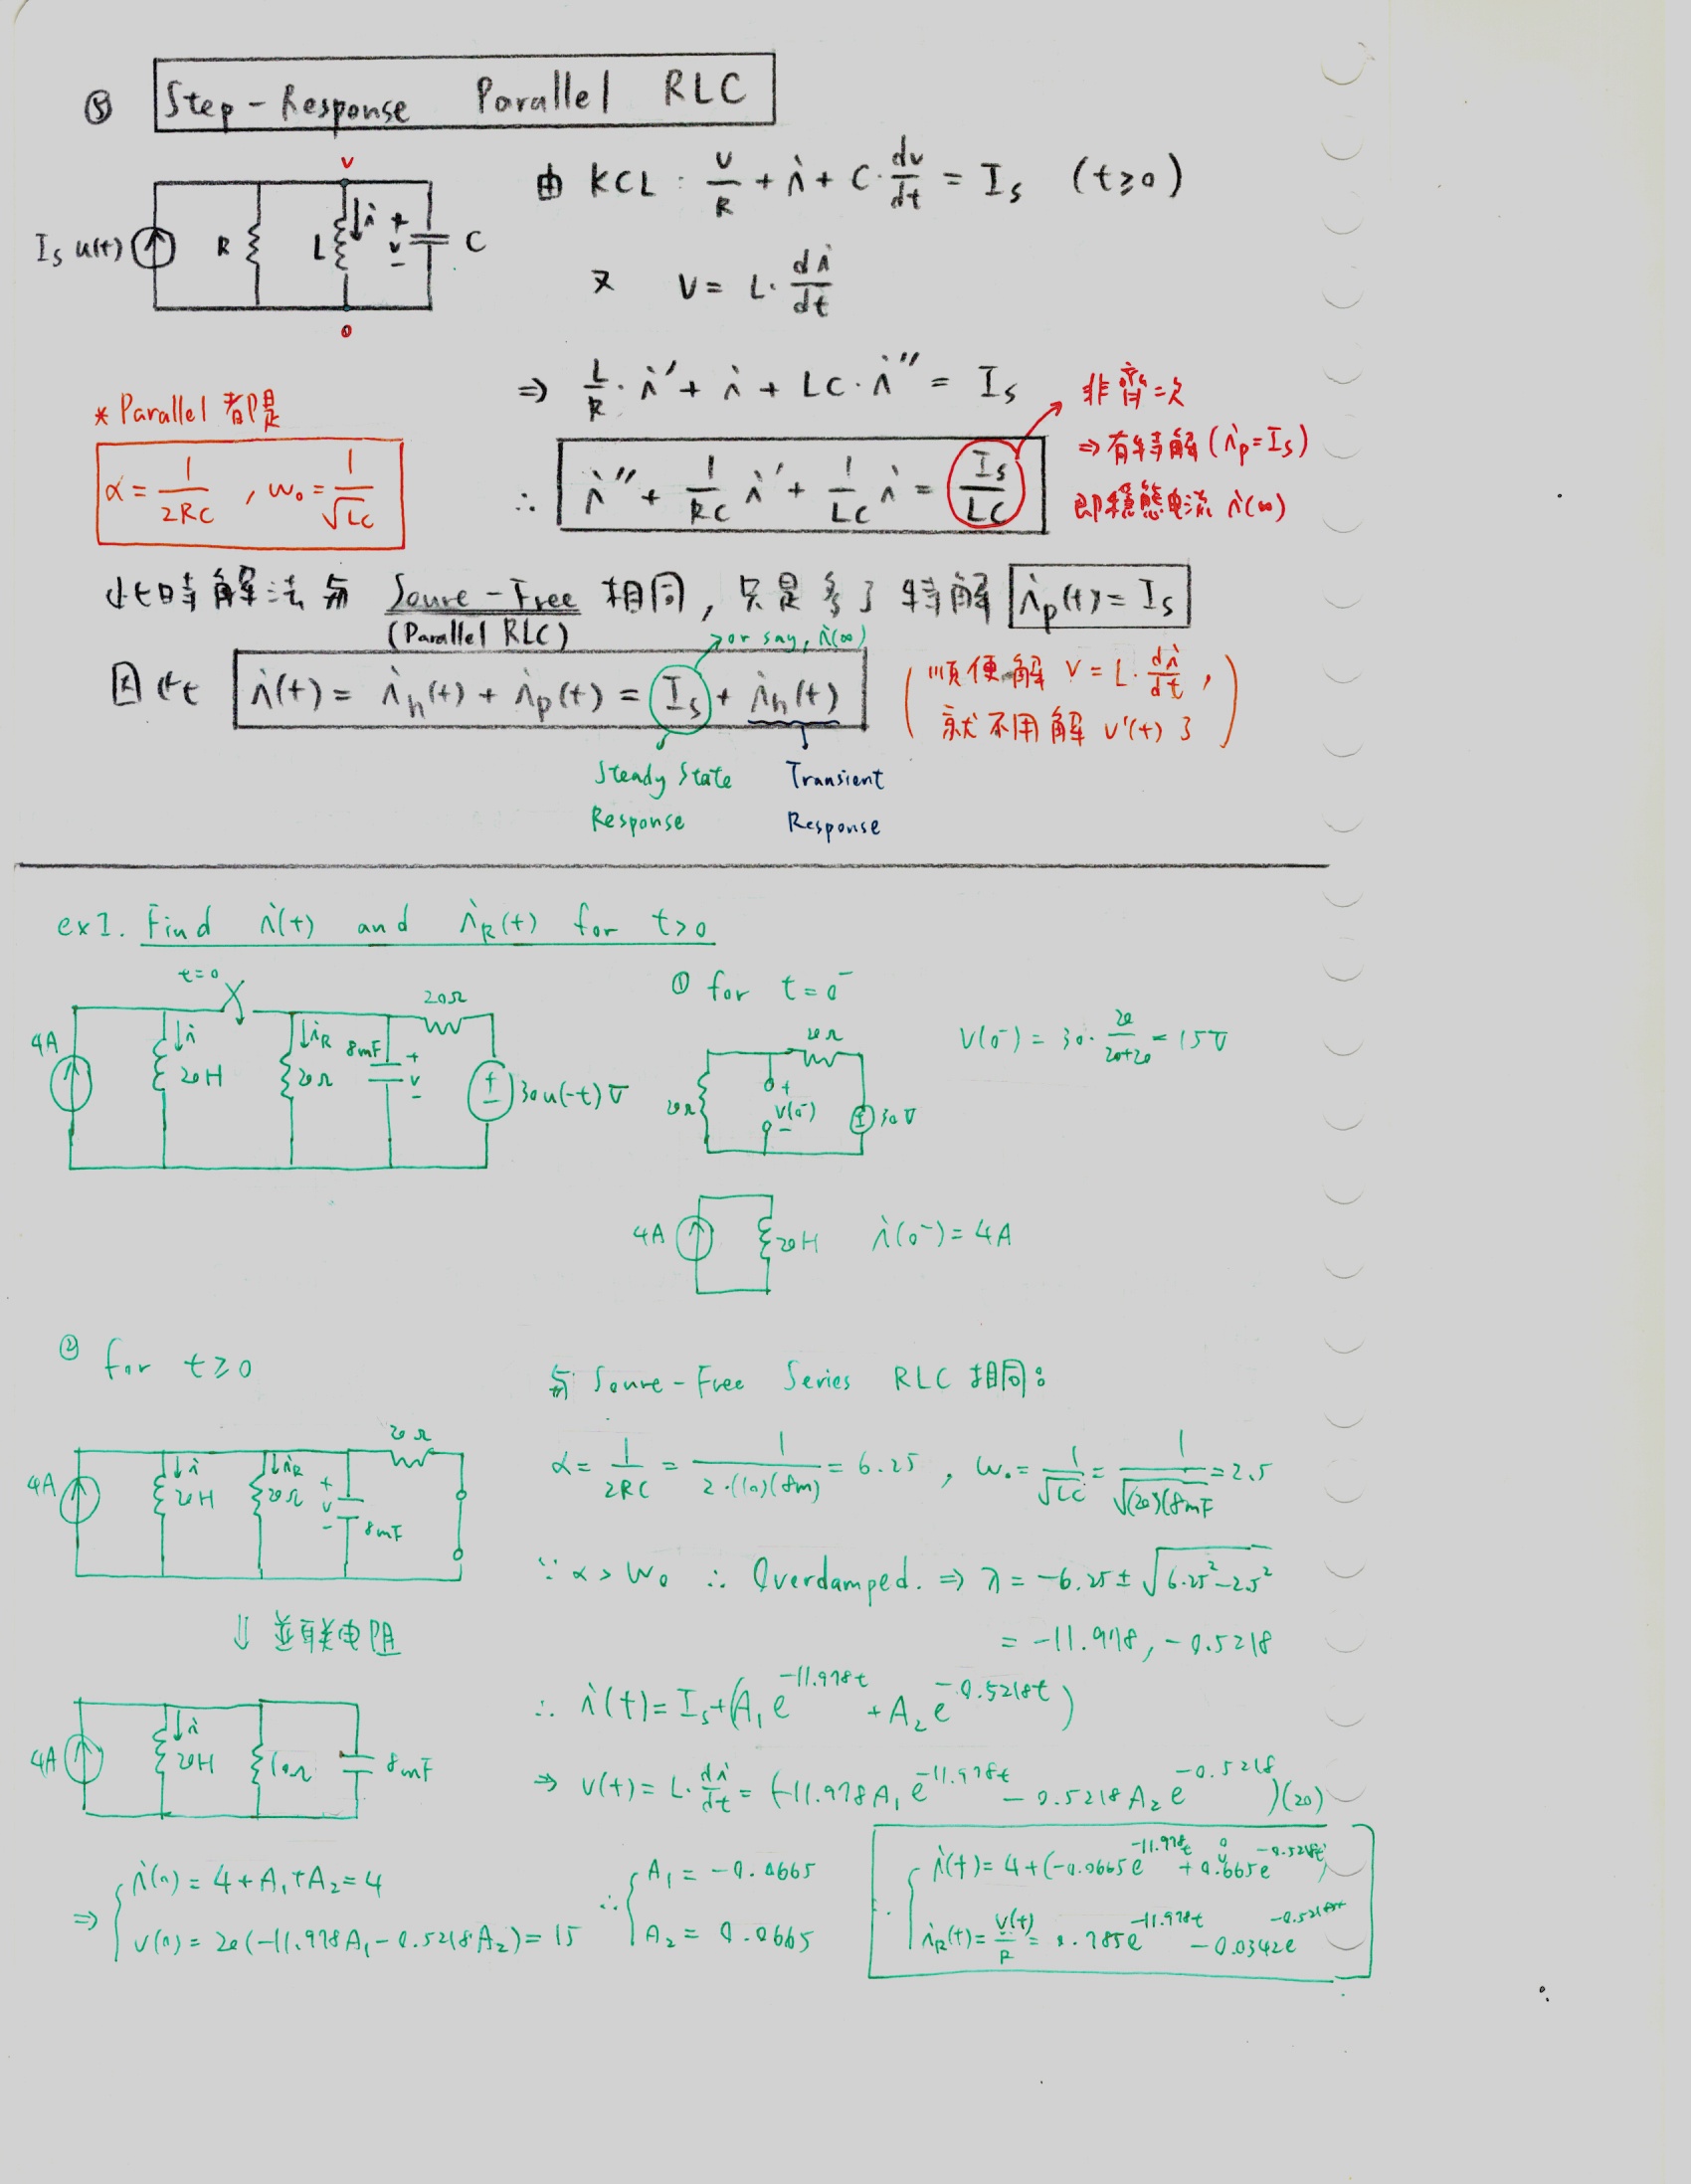 ⑤ Step-Response Parallel RLC
由 KCL: v/R + i + C·dv/dt = Is (t≥0)
v
Is u(t) R L i + v - C
0
又 V = L·di/dt
⇒ L/R·i' + i + LC·i'' = Is
非齊次
⇒有特解(ip=Is)
即穩態電流 i(∞)
* Parallel 都是
α = 1/2RC , ω₀ = 1/√LC
∴ i'' + 1/RC i' + 1/LC i = Is/LC
此時解法與 Soure-Free 相同, 只是多了特解 ip(t) = Is
(Parallel RLC)
or say, i(∞)
因此 i(t) = ih(t) + ip(t) = Is + ih(t)
(順便解 V = L·di/dt,
就不用解 v'(t) 了)
Steady State Response
Transient Response
ex1. Find i(t) and iR(t) for t>0
t=0
4A i 20H iR 20Ω 8mF + v - 20Ω 30u(-t) V
① for t=0⁻
20Ω 20Ω + V(0⁻) - 30V
V(0⁻) = 30·20/20+20 = 15V
4A 20H i(0⁻) = 4A
② for t≥0
4A i 20H iR 20Ω + v - 8mF 20Ω
與 Soure-Free Series RLC 相同:
α = 1/2RC = 1/2·(10)(8m) = 6.25 , ω₀ = 1/√LC = 1/√(20)(8mF = 2.5
∵ α > ω₀ ∴ Overdamped. ⇒ λ = -6.25 ± √6.25²-2.5²
= -11.978, -0.5218
⇓ 並联电阻
4A i 20H 10Ω 8mF
∴ i(t) = Is + (A₁e^-11.978t + A₂e^-0.5218t)
⇒ v(t) = L·di/dt = (-11.978A₁e^-11.978t - 0.5218A₂e^-0.5218)(20)
⇒ { i(0) = 4 + A₁ + A₂ = 4
v(0) = 20(-11.978A₁ - 0.5218A₂) = 15
∴ { A₁ = -0.0665
A₂ = 0.0665
∴ { i(t) = 4 + (-0.0665e^-11.978t + 0.0665e^-0.5218t)
iR(t) = v(t)/R = 0.785e^-11.978t - 0.0342e^-0.5218t